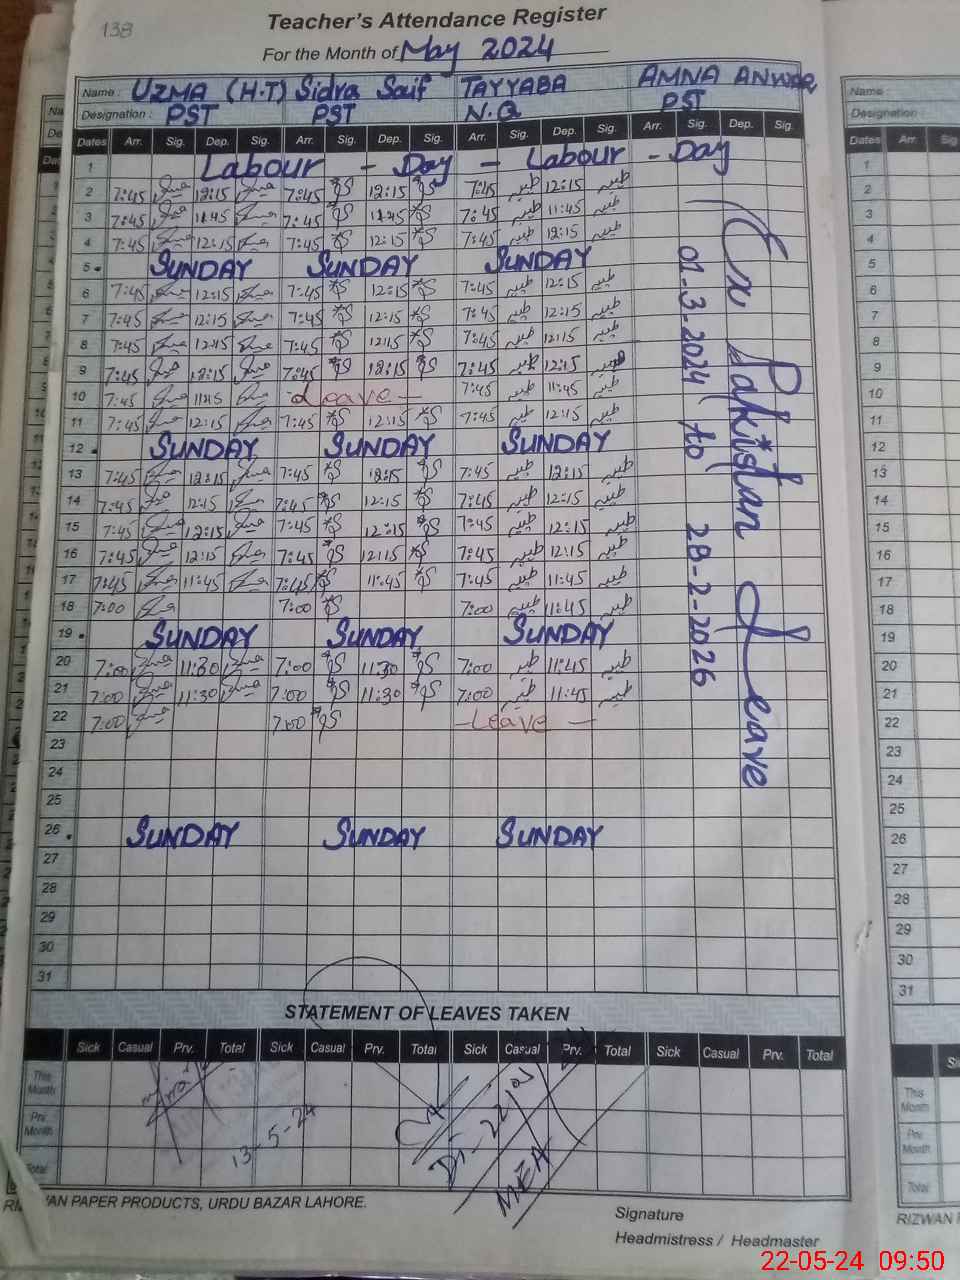 138
Teacher's Attendance Register
For the Month of May 2024
Name : UZMA (H.T) Sidra Saif TAYYABA AMNA ANWAR
Designation : PST PST N.Q PST
Dates Arr. Sig. Dep. Sig. Arr. Sig. Dep. Sig. Arr. Sig. Dep. Sig. Arr. Sig. Dep. Sig.
1 Labour - Day - Labour - Day
2 7:45 12:15 7:45 12:15 7:45 طیبہ 12:15 طیبہ
3 7:45 11:45 7:45 11:45 7:45 طیبہ 11:45 طیبہ
4 7:45 12:15 7:45 12:15 7:45 طیبہ 12:15 طیبہ
5 SUNDAY SUNDAY SUNDAY
6 7:45 12:15 7:45 12:15 7:45 طیبہ 12:15 طیبہ
7 7:45 12:15 7:45 12:15 7:45 طیبہ 12:15 طیبہ
8 7:45 12:15 7:45 12:15 7:45 طیبہ 12:15 طیبہ
9 7:45 12:15 7:45 12:15 7:45 طیبہ 12:15
10 7:45 11:15 Leave 7:45 طیبہ 11:45 طیبہ
11 7:45 12:15 7:45 12:15 7:45 طیبہ 12:15 طیبہ
12 SUNDAY SUNDAY SUNDAY
13 7:45 12:15 7:45 12:15 7:45 طیبہ 12:15 طیبہ
14 7:45 12:15 7:45 12:15 7:45 طیبہ 12:15 طیبہ
15 7:45 12:15 7:45 12:15 7:45 طیبہ 12:15 طیبہ
16 7:45 12:15 7:45 12:15 7:45 طیبہ 12:15 طیبہ
17 7:45 11:45 7:45 11:45 7:45 طیبہ 11:45 طیبہ
18 7:00 7:00 7:00 طیبہ 11:45 طیبہ
19 SUNDAY SUNDAY SUNDAY
20 7:00 11:30 7:00 11:30 7:00 طیبہ 11:45 طیبہ
21 7:00 11:30 7:00 11:30 7:00 طیبہ 11:45 طیبہ
22 7:00 7:00 - Leave -
23
24
25
26 SUNDAY SUNDAY SUNDAY
27
28
29
30
31
Ex Pakistan Leave
01-3-2024 to 28-2-2026
STATEMENT OF LEAVES TAKEN
Sick Casual Prv. Total Sick Casual Prv. Total Sick Casual Prv. Total Sick Casual Prv. Total
This Month
Prv. Month
Total
13-5-24
MEA
RIZWAN PAPER PRODUCTS, URDU BAZAR LAHORE.
Signature
Headmistress / Headmaster
Name :
Designation :
Dates Arr. Sig
1
2
3
4
5
6
7
8
9
10
11
12
13
14
15
16
17
18
19
20
21
22
23
24
25
26
27
28
29
30
31
This Month
Prv. Month
Total
RIZWAN
22-05-24 09:50